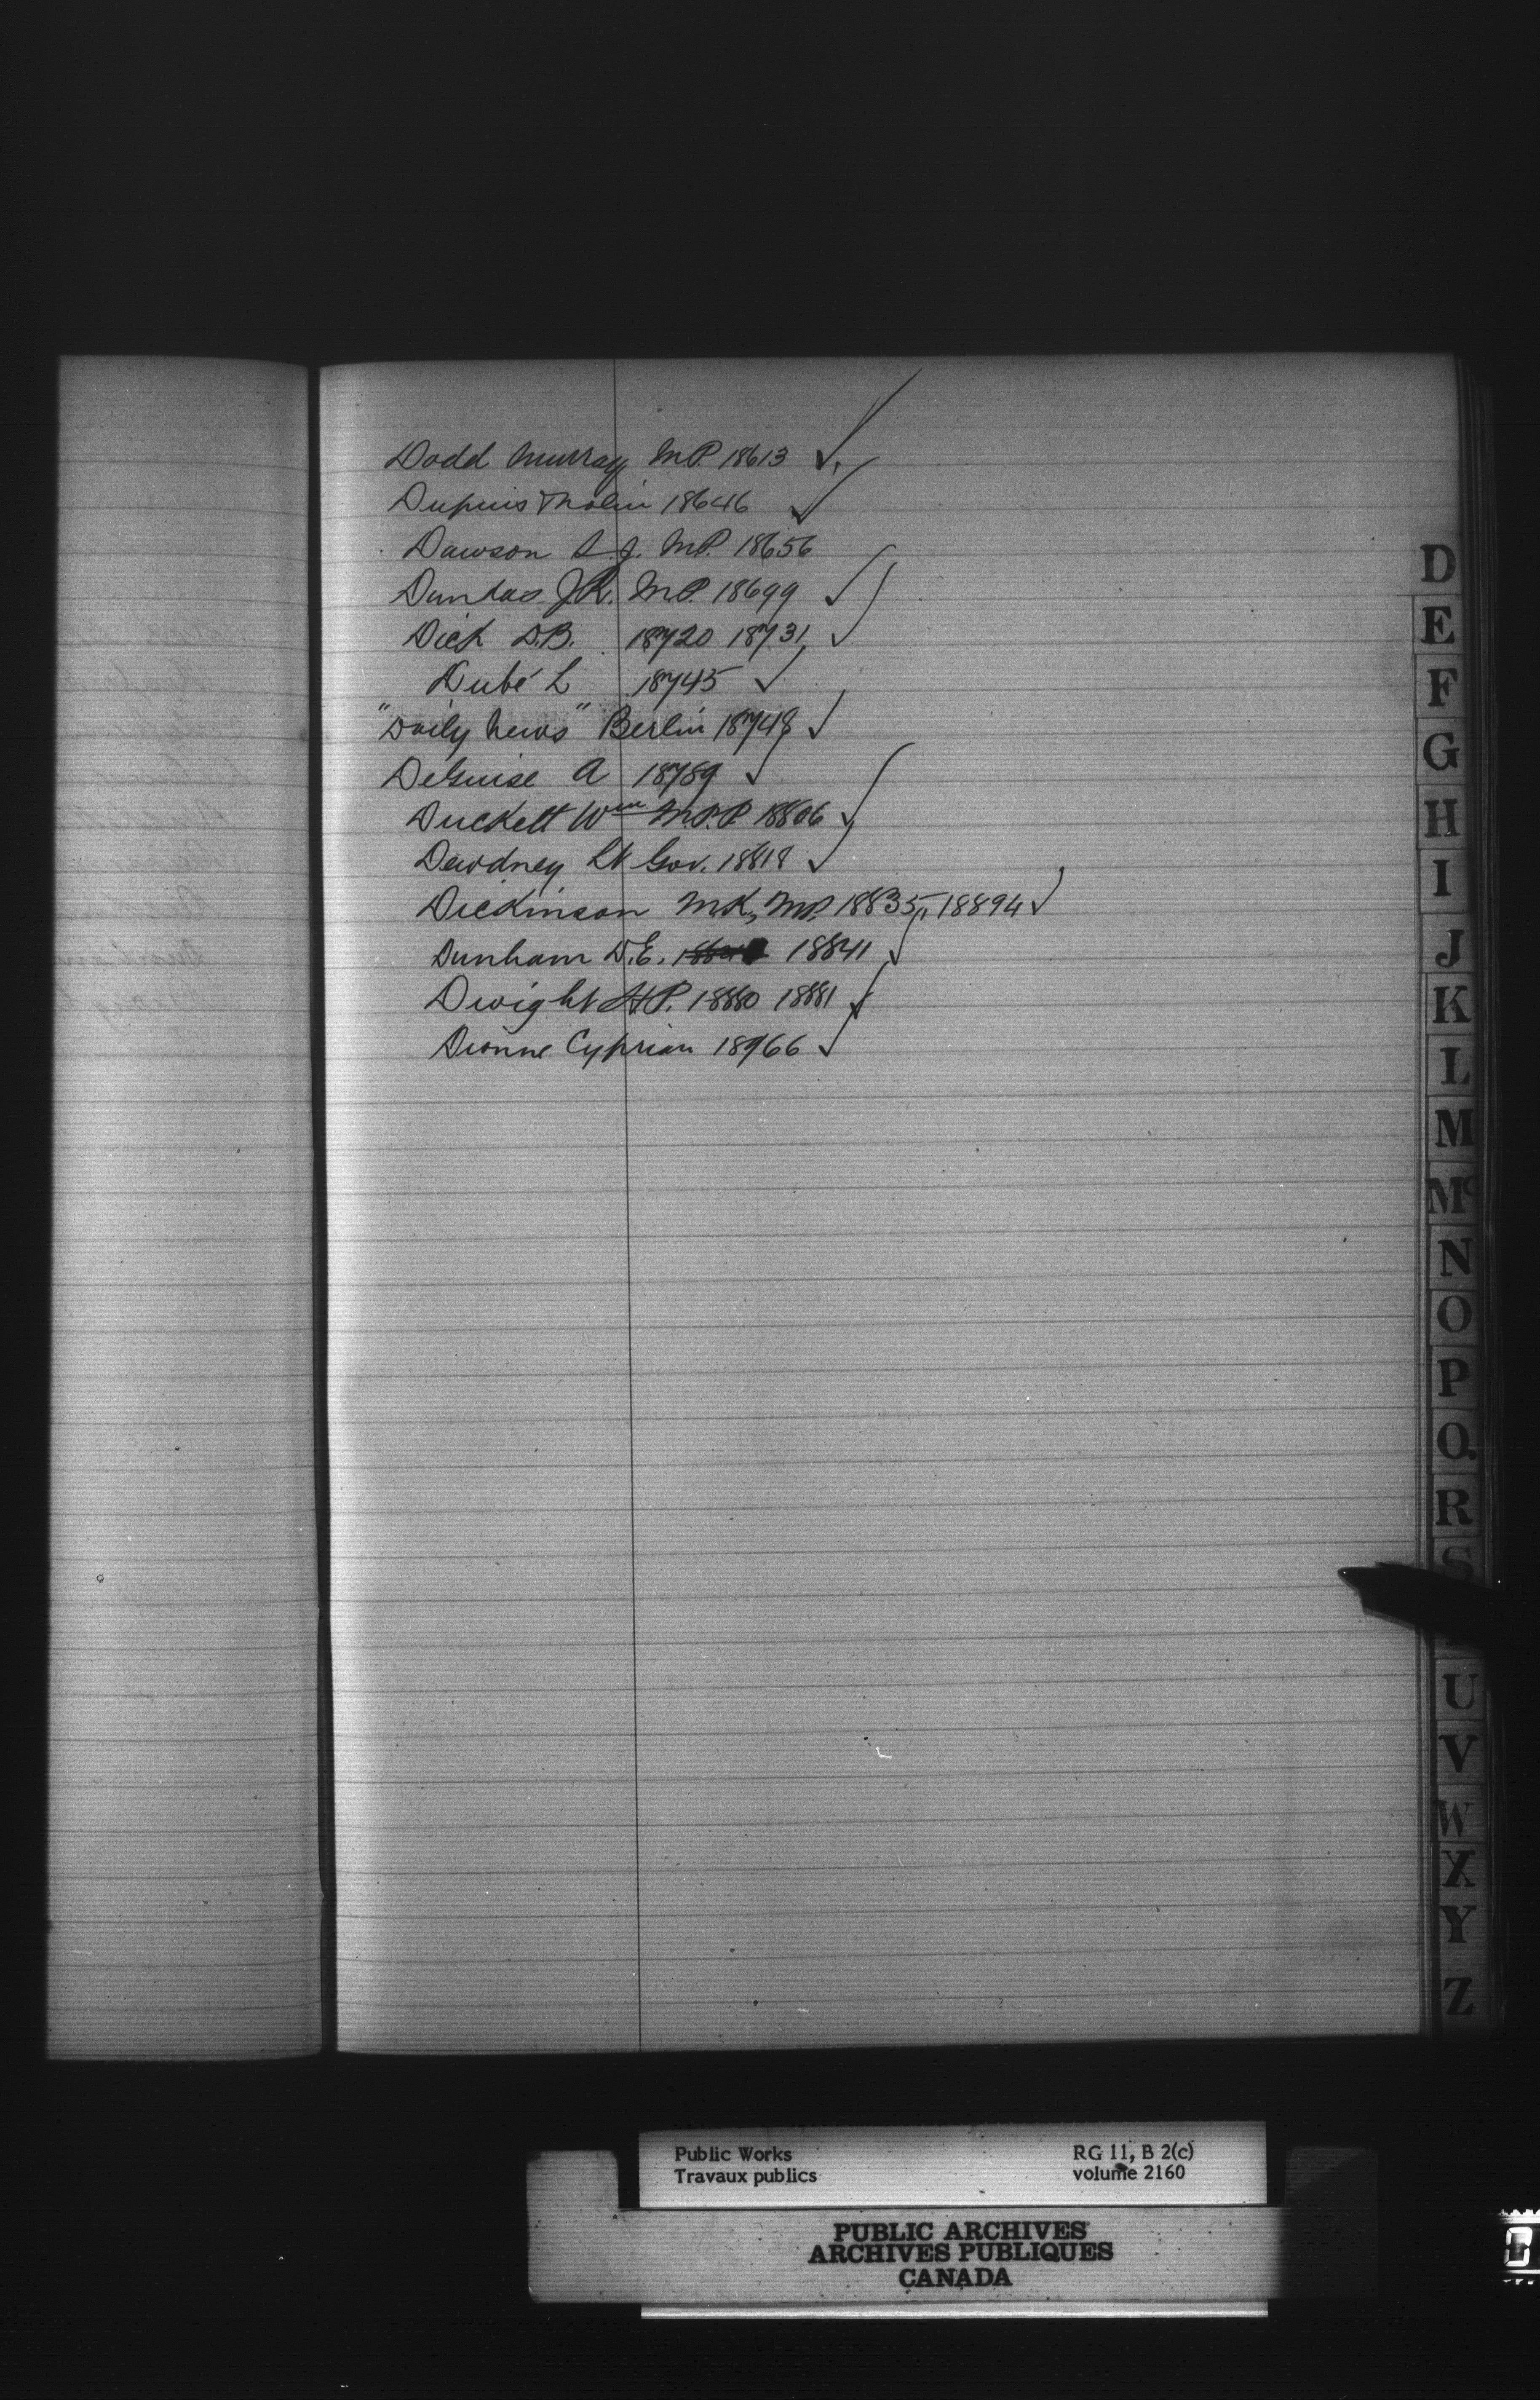 Dodd Murray M.P. 18613 ✓
Dupuis & Molin 18646 ✓
Dawson S.J. M.P. 18656
Dundas J.R. M.P. 18699 ✓
Dick D.B. 18720 18731 ✓
Dubé L 18745 ✓
"Daily News" Berlin 18748 ✓
DeGuise A 18789 ✓
Duckett Wm M.P.P. 18806 ✓
Dewdney Lt Gov. 18818 ✓
Dickinson M.K, M.P. 18835,, 18894 ✓
Dunham D.E. 18841 ✓
Dwight H.P. 18880 18881 ✓
Dionne Cyprian 18966 ✓
D
E
F
G
H
I
J
K
L
M
Mc
N
O
P
Q
R
S
U
V
W
X
Y
Z
Public Works RG 11, B 2(c)
Travaux publics volume 2160
PUBLIC ARCHIVES
ARCHIVES PUBLIQUES
CANADA